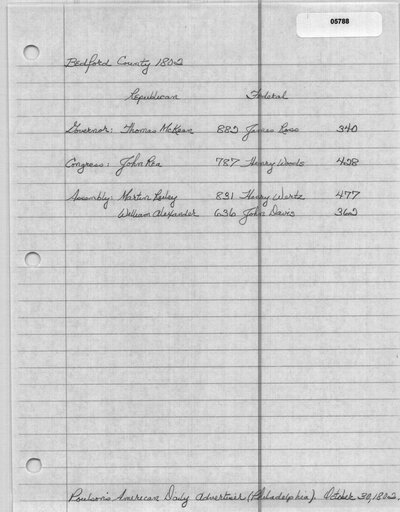 05788
Bedford County 1802
Republican Federal
Governor: Thomas McKean 882 James Ross 340
Congress: John Rea 787 Henry Woods 428
Assembly: Martin Reiley 831 Henry Wertz 477
William Alexander 636 John Davis 362
Poulson's American Daily Advertiser (Philadelphia). October 30, 1802.